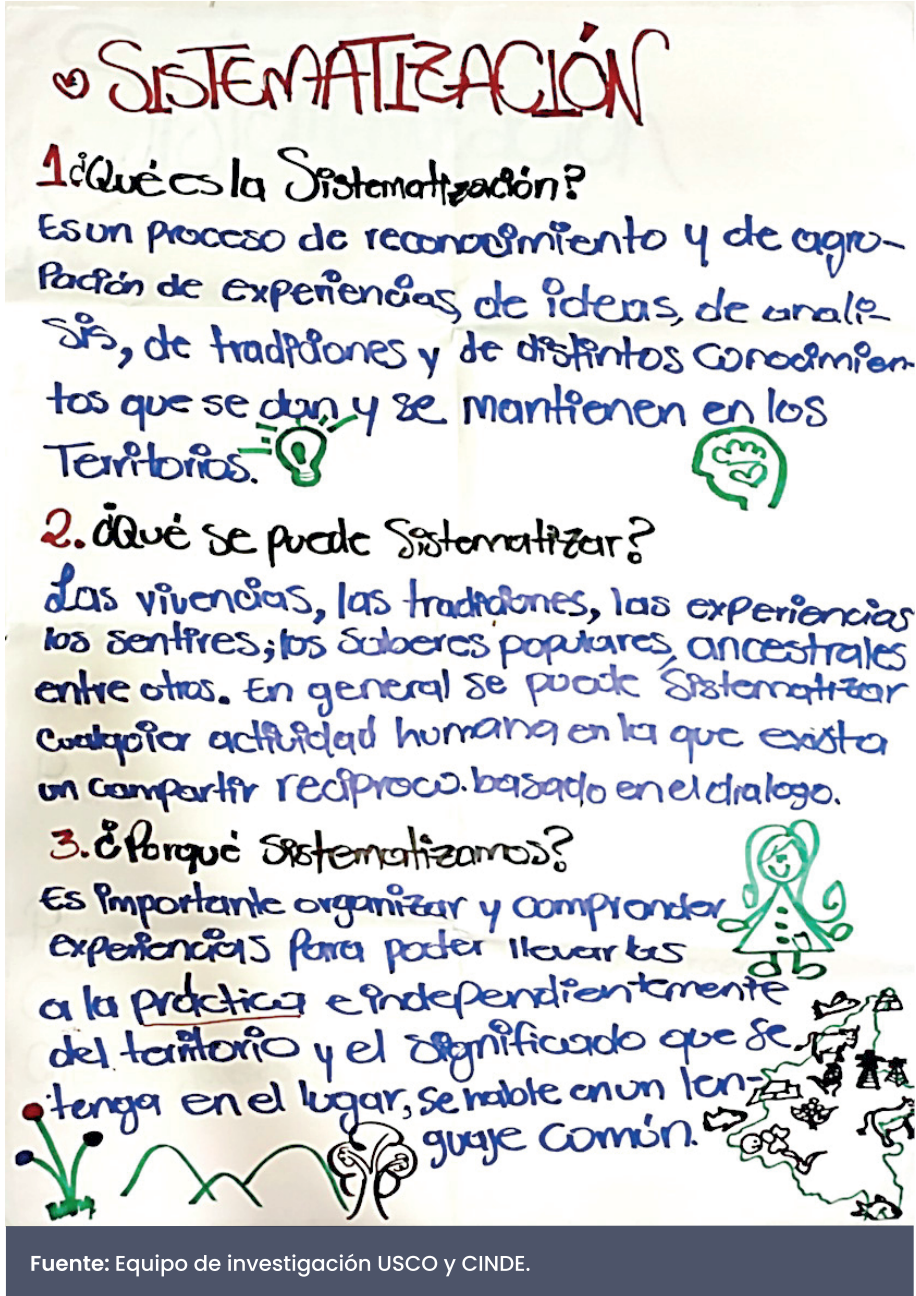 SISTEMATIZACIÓN
1 ¿Qué es la Sistematización?
Es un proceso de reconocimiento y de agru-
pación de experiencias, de ideas, de anali-
sis, de tradiciones y de distintos conocimien-
tos que se dan y se mantienen en los
Territorios.
2. ¿Qué se puede Sistematizar?
Las vivencias, las tradiciones, las experiencias
los sentires; los saberes populares, ancestrales
entre otros. En general se puede Sistematizar
cualquier actividad humana en la que exista
un compartir reciproco. basado en el dialogo.
3. ¿Porqué sistematizamos?
Es importante organizar y comprender
experiencias para poder llevarlas
a la práctica e independientemente
del territorio y el significado que se
tenga en el lugar, se hable en un len-
guaje común.
Fuente: Equipo de investigación USCO y CINDE.